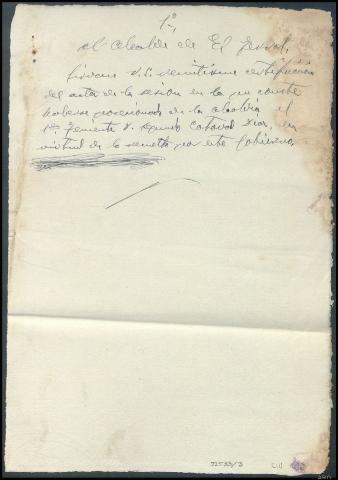 1º,
Al Alcalde de El
Sírvase V.S. remitirme certificación
del acta de la sesión en la que conste
haberse posesionado de la alcaldía el
1er Teniente D.
virtud de lo resuelto por este Gobierno.
32533/3